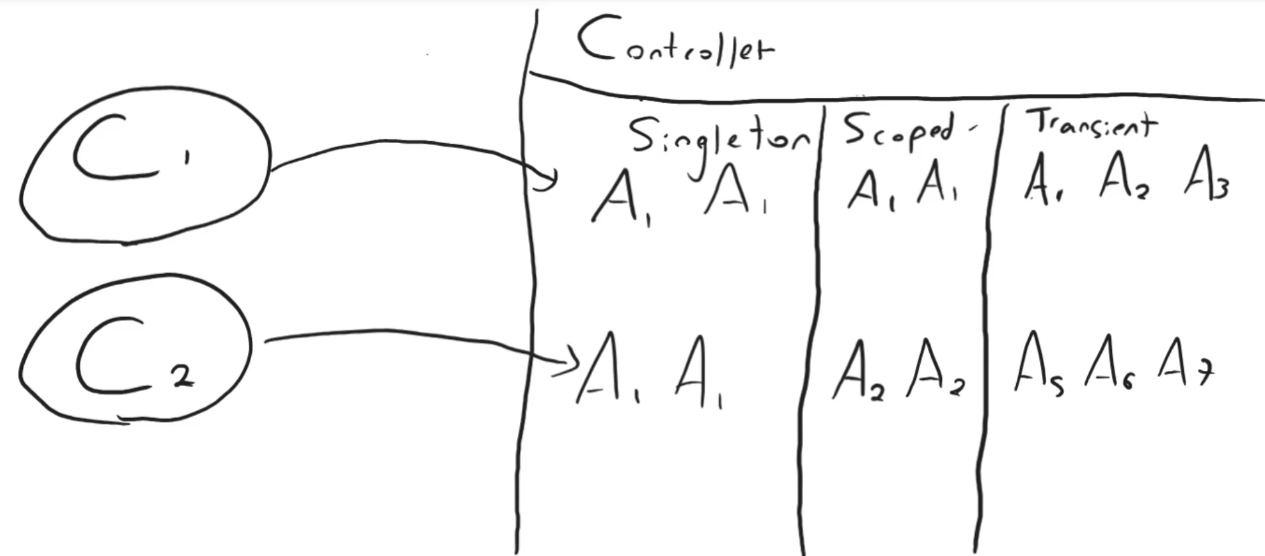 Controller
C1
Singleton Scoped Transient
A1 A1 A1 A1 A1 A2 A3
C2
A1 A1 A2 A2 A5 A6 A7